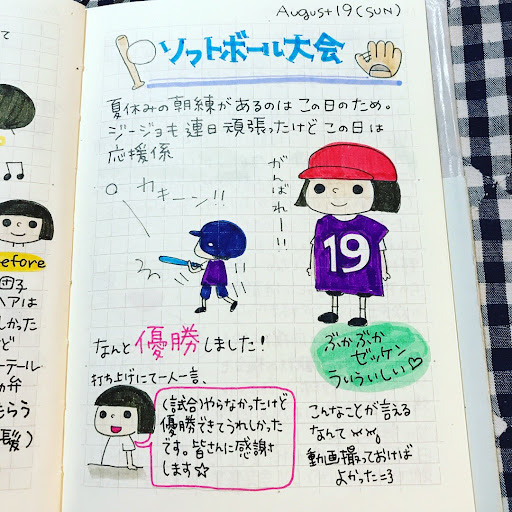 て
before
団子
ヘアは
しかった
ど
ーテール
カ弁
らう
髪)
August 19 (SUN)
ソフトボール大会
夏休みの朝練があるのは この日のため。
ジージョも 連日 頑張ったけど この日は
応援係
カキーン!!
がんばれー!!
19
なんと 優勝 しました!
ぶかぶか
ゼッケン
ういういしい♡
打ち上げにて一人一言、
(試合)やらなかったけど
優勝できてうれしかった
です。皆さんに感謝
します☆
こんなことが言える
なんて
動画撮っておけば
よかった=3